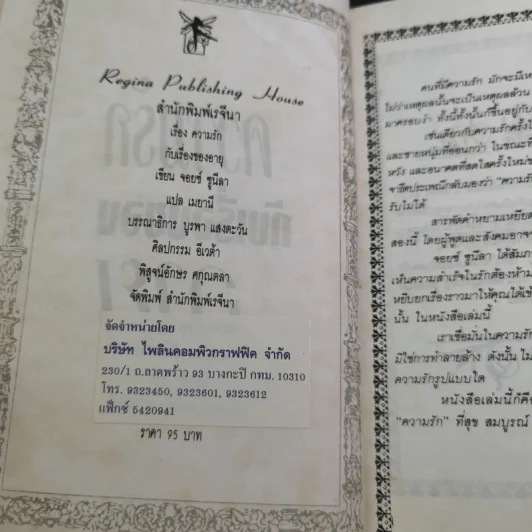 Regina Publishing House
สำนักพิมพ์เรจีนา
เรื่อง ความรัก
กับเรื่องของอายุ
เขียน จอยซ์ ซูนีลา
แปล เมยานี
บรรณาธิการ บูรพา แสงตะวัน
ศิลปกรรม อีเวต้า
พิสูจน์อักษร ศกุณตลา
จัดพิมพ์ สำนักพิมพ์เรจีนา
จัดจำหน่ายโดย
บริษัท ไพลินคอมพิวกราฟฟิค จำกัด
230/1 ถ.ลาดพร้าว 93 บางกะปิ กทม. 10310
โทร. 9323450, 9323601, 9323612
แฟ็กซ์ 5420941
ราคา 95 บาท
คนที่มีความรัก มักจะมีเห
ไม่ว่าเหตุผลนั้นจะเป็นเหตุผลส่วน
มาครอบงำ ทั้งนี้ทั้งนั้นก็ขึ้นอยู่กับ
เช่นเดียวกับความรักครั้งให
และชายหนุ่มที่อ่อนกว่า ในขณะที่
หวัง และอนาคตที่สดใสครั้งใหม่ข
จารีตประเพณีกลับมองว่า "ความรั
รับไม่ได้
สารพัดคำหยามเหยียด
สองนี้ โดยผู้พูดและสังคมอาจจ
จอยซ์ ซูนีลา ได้สัมภา
เห็นความสำเร็จในรักต้องห้าม
หยิบยกเรื่องราวมาให้คุณได้เข้
นั้น ในหนังสือเล่มนี้
เราเชื่อมั่นในความรัก
มิใช่การทำลายล้าง ดังนั้น ไม่
ความรักรูปแบบใด
หนังสือเล่มนี้ก็คือ
"ความรัก" ที่สุข สมบูรณ์